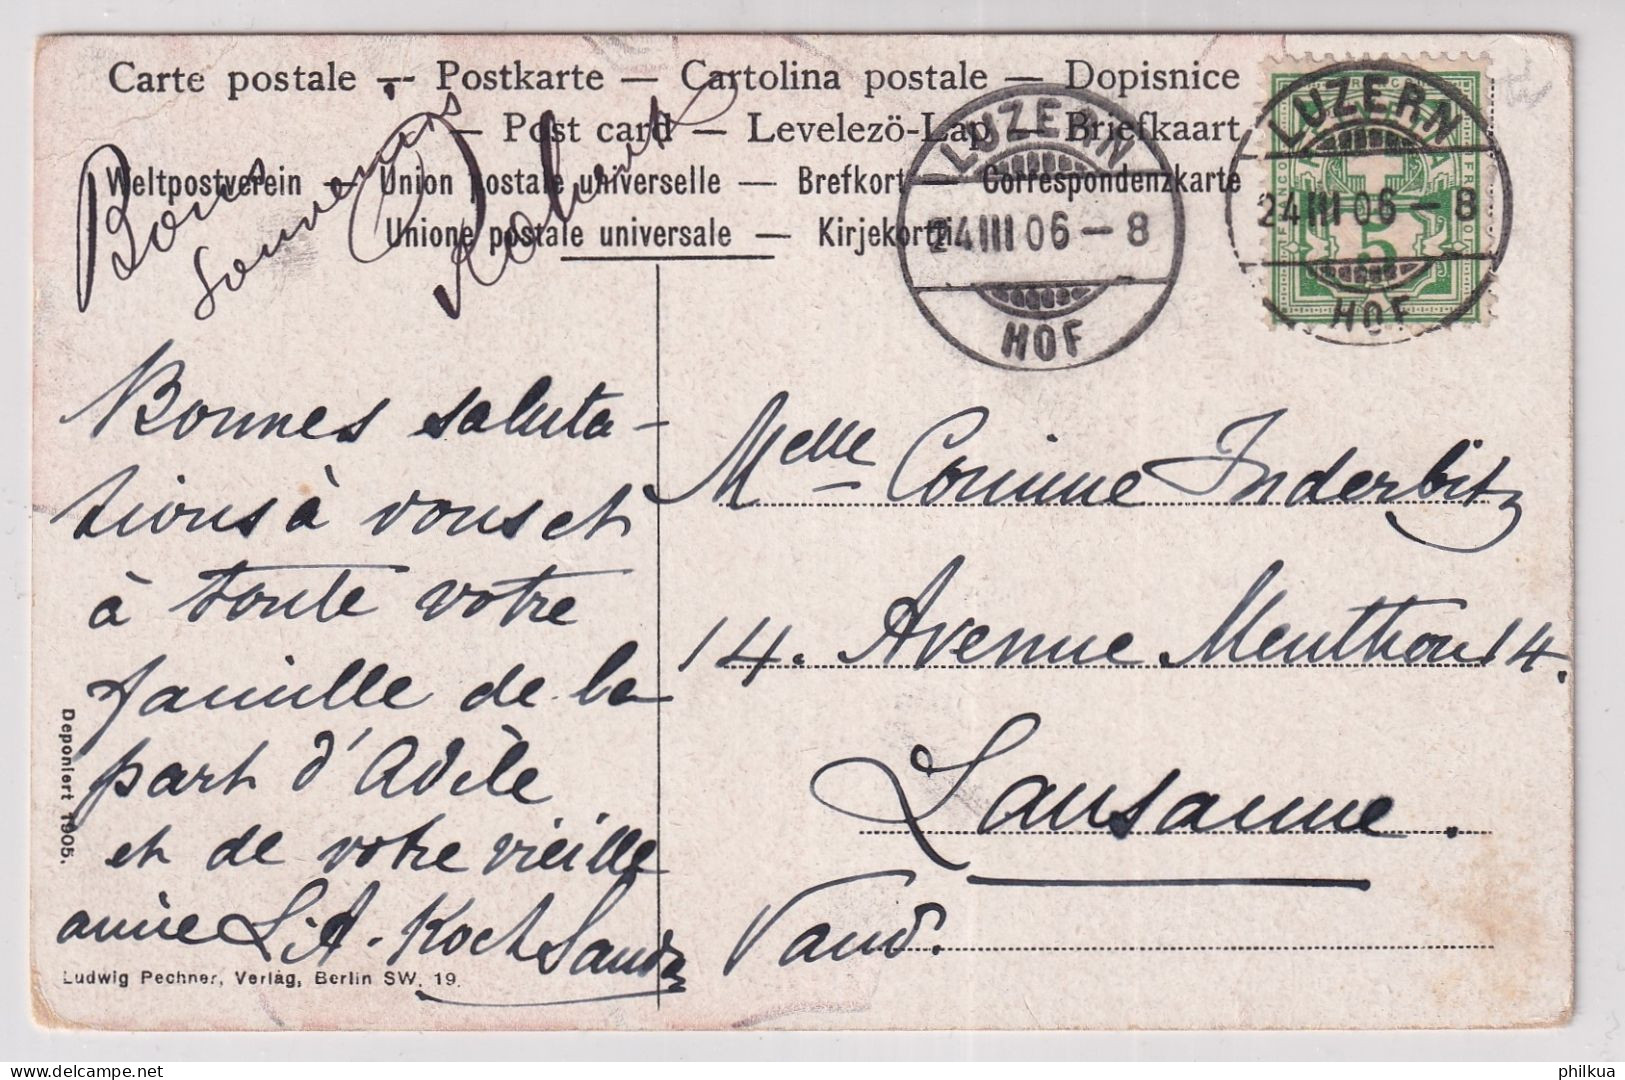 Carte postale — Postkarte — Cartolina postale — Dopisnice
— Post card — Levelezö-Lap — Briefkaart
Weltpostverein — Union postale universelle — Brefkort — Correspondenzkarte
Unione postale universale — Kirjekortti
Bons
souvenirs
Robert
LUZERN
24 III 06 - 8
HOF
LUZERN
24 III 06 - 8
HOF
FRANCO
5
Bonnes saluta-
tions à vous et
à toute votre
famille de la
part d'Adèle
et de votre vieille
amie L. A. Koch
Melle Corinne Inderbitz
14. Avenue Menthon 14.
Lausanne.
Vaud.
Deponiert 1905.
Ludwig Pechner, Verlag, Berlin SW. 19.
delcampe.net
philkua